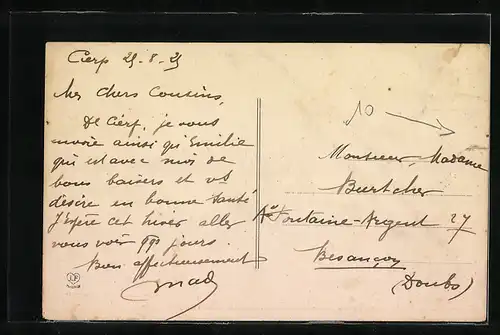 Cierp 25-8-25
Mes chers Cousins,
De Cierp, je vous
envoie ainsi qu'Emilie
qui est avec moi de
bons baisers et vs
désire en bonne santé
J'espère cet hiver aller
vous voir qqs jours.
Bien affectueusement
Mad
10
Monsieur, Madame
Burtcher
Fontaine-Argent 27
Besançon
(Doubs)